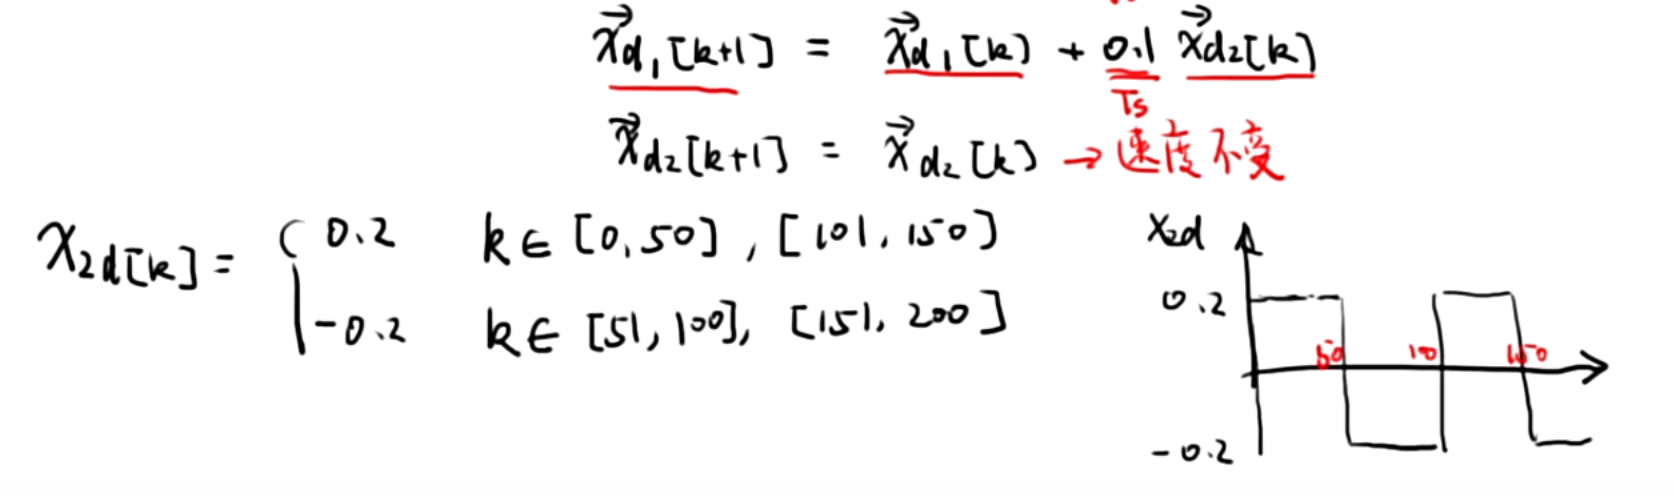 x⃗d₁[k+1] = x⃗d₁[k] + 0.1 x⃗d₂[k]
Ts
x⃗d₂[k+1] = x⃗d₂[k] → 速度不变
x₂d[k] = { 0.2 k∈[0,50], [101,150]
-0.2 k∈[51,100], [151,200]
x₂d
0.2
50 100 150
-0.2